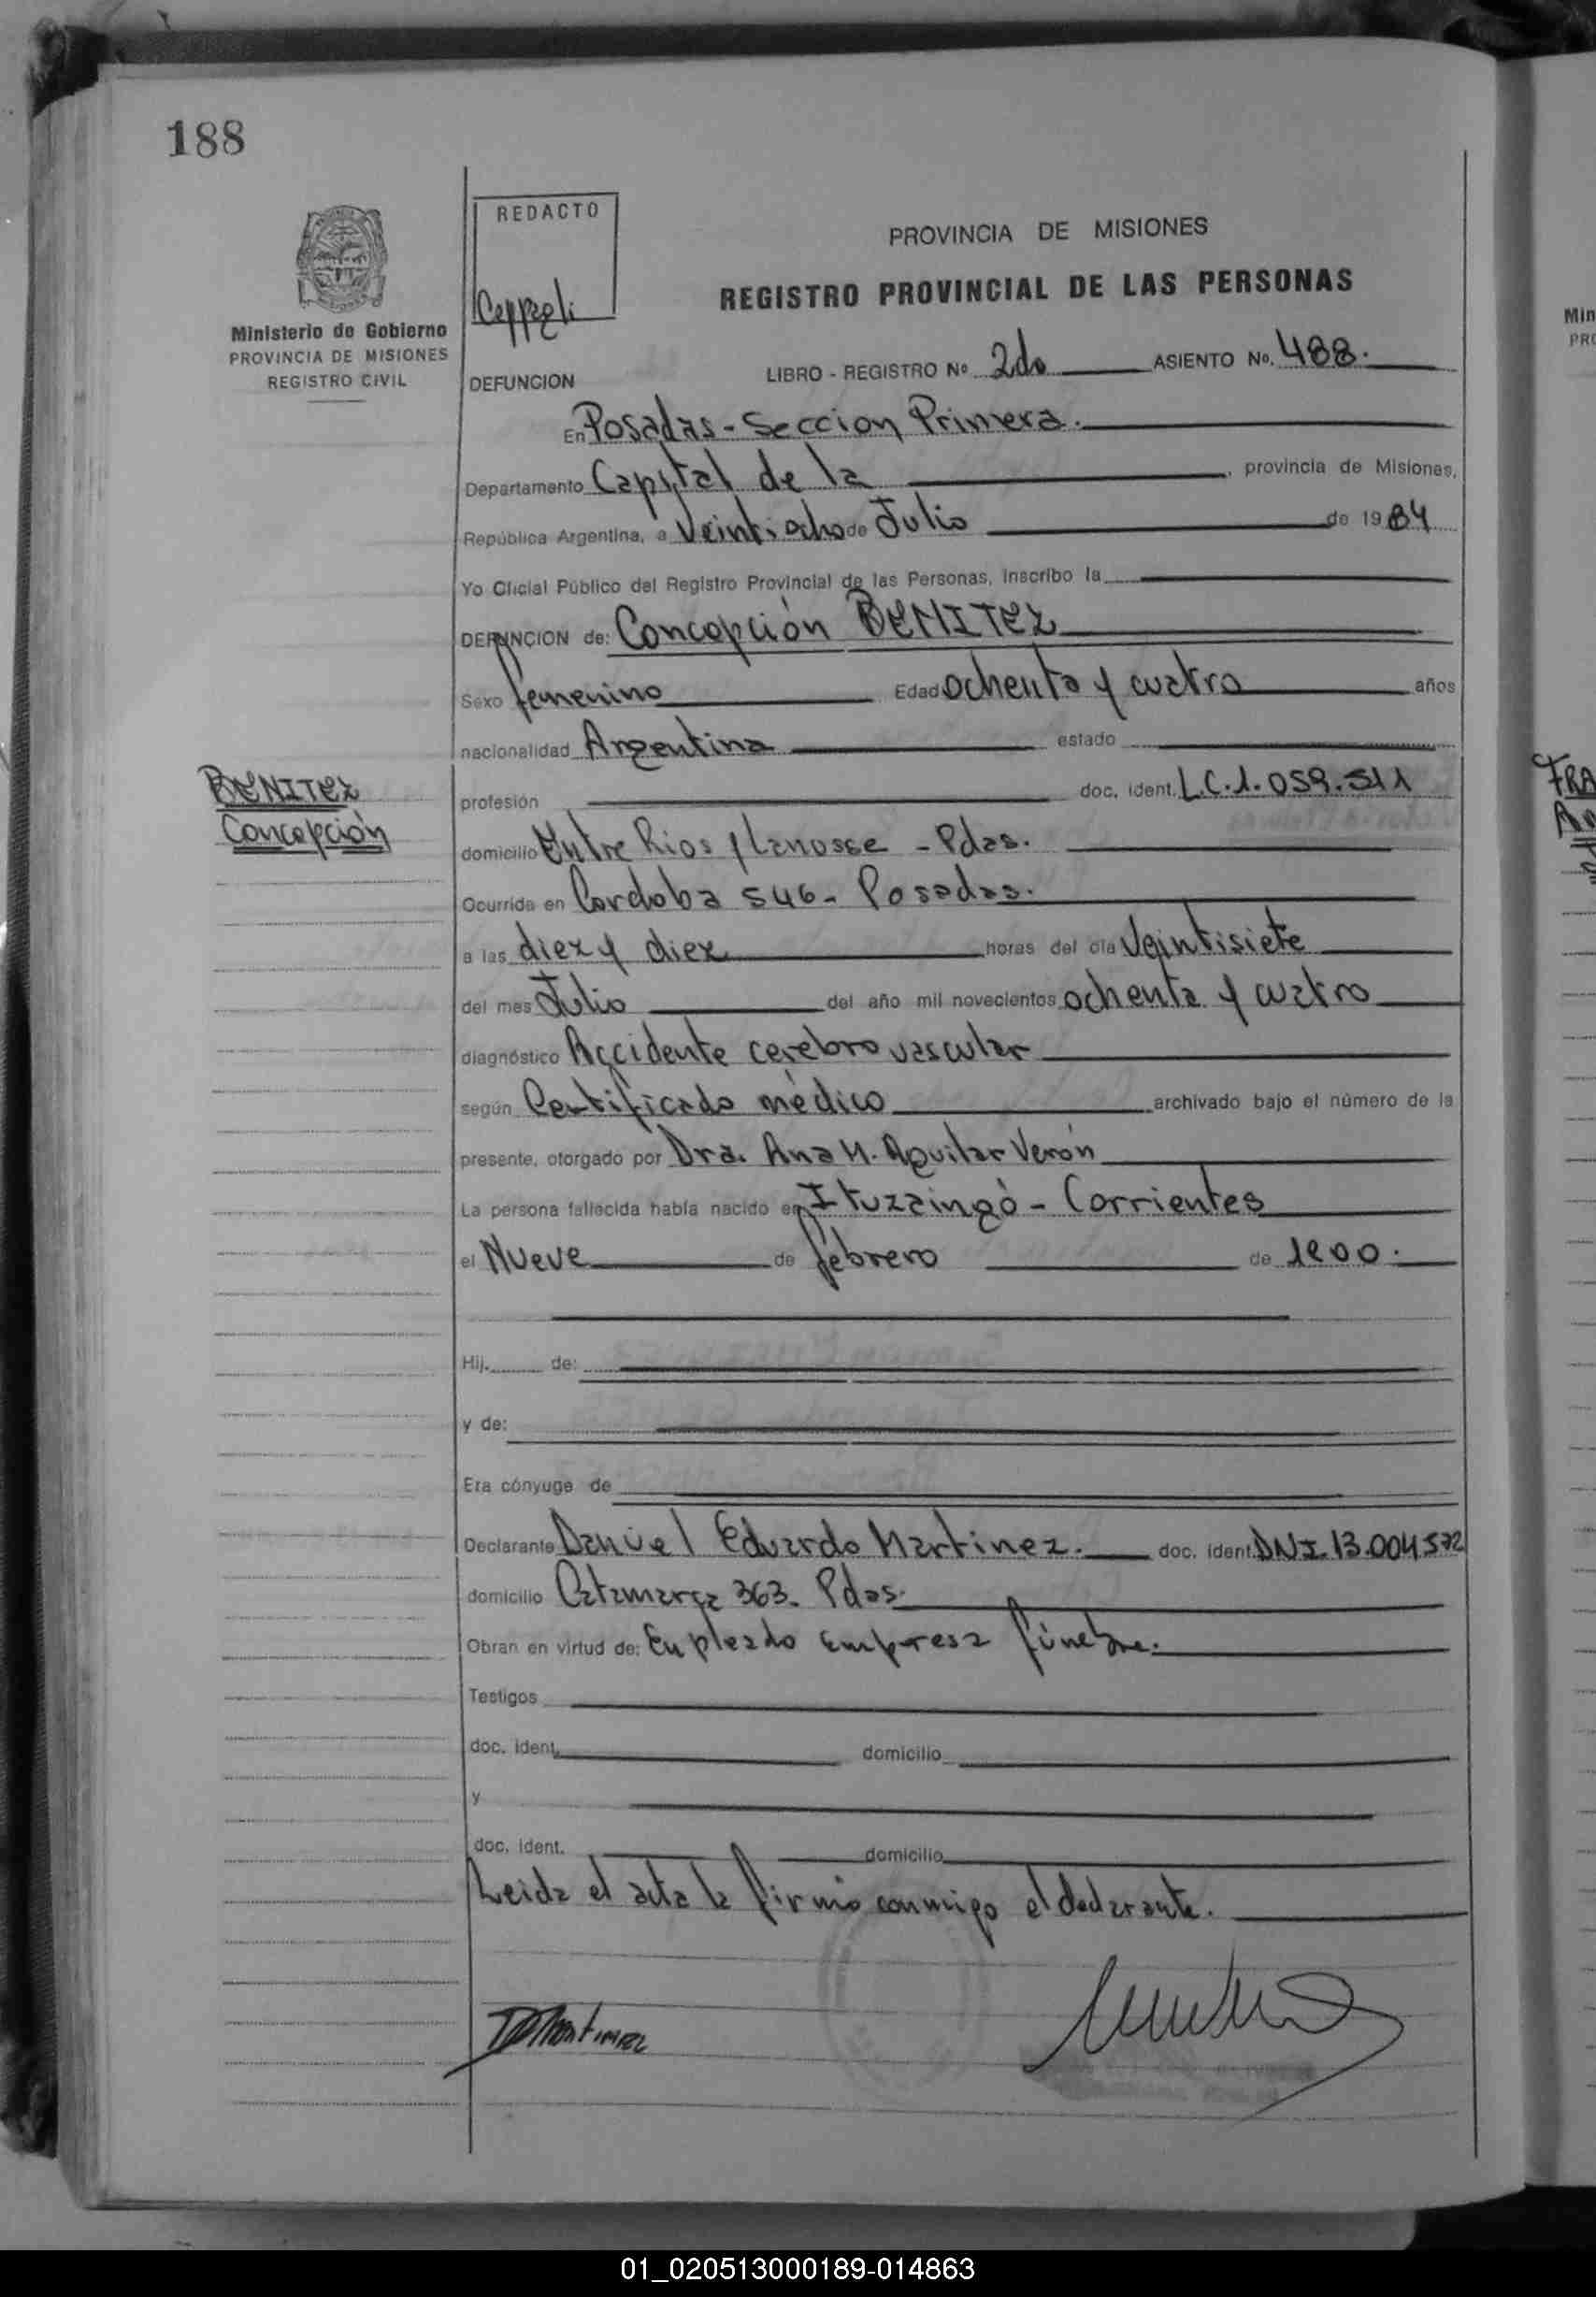 188
REDACTO
Ministerio de Gobierno
PROVINCIA DE MISIONES
REGISTRO CIVIL
PROVINCIA DE MISIONES
REGISTRO PROVINCIAL DE LAS PERSONAS
LIBRO - REGISTRO Nº 2do ASIENTO Nº. 488.
DEFUNCION
En Posadas - Seccion Primera.
Departamento Capital de la , provincia de Misiones,
República Argentina, a Veintiocho de Julio de 1984
Yo Oficial Público del Registro Provincial de las Personas, inscribo la
DEFUNCION de: Concepción BENITEZ
Sexo femenino Edad ochenta y cuatro años
nacionalidad Argentina estado
BENITEZ
Concepción
profesión doc. ident. L.C.1.059.511
domicilio Entre Rios y Lanusse - Pdas.
Ocurrida en Cordoba 546 - Posadas.
a las diez y diez horas del día Veintisiete
del mes Julio del año mil novecientos ochenta y cuatro
diagnóstico Accidente cerebro vascular
según Certificado médico archivado bajo el número de la
presente, otorgado por Dra. Ana M. Aguilar Verón
La persona fallecida había nacido en Ituzaingó - Corrientes
el Nueve de febrero de 1900.
Hij. de:
y de:
Era cónyuge de
Declarante Daniel Eduardo Martinez. doc. ident. DNI.13.004572
domicilio Catamarca 363. Pdas.
Obran en virtud de: Empleado Empresa fúnebre.
Testigos
doc. ident. domicilio
y
doc. ident. domicilio
Leida el acta la firmó conmigo el declarante.
DMartinez
FRA
Min
PRO
01_020513000189-014863